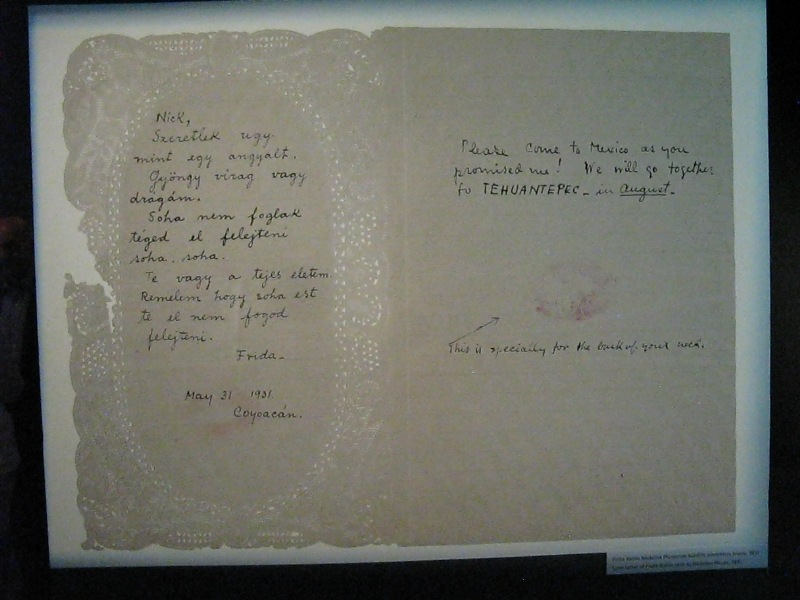 Nick,
Szeretlek ugy-
mint egy angyalt.
Gyöngy virag vagy
dragám.
Soha nem foglak
téged el felejteni
soha. soha.
Te vagy a tejes eletem.
Remelem hogy soha est
te el nem fogod
felejteni.
Frida_
May 31 1931.
Coyoacán.
Please Come to Mexico as you
promised me! We will go together
to TEHUANTEPEC_ in August_
This is specially for the back of your neck.